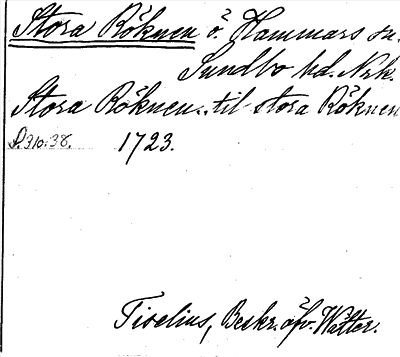 Stora Röknen ö. Hammars sn.
Sundbo hd. Nrk.
Stora Röknen.. til stora Röknen
S. 310:38. 1723.
Tiselius, Beskr. öfv. Wätter.